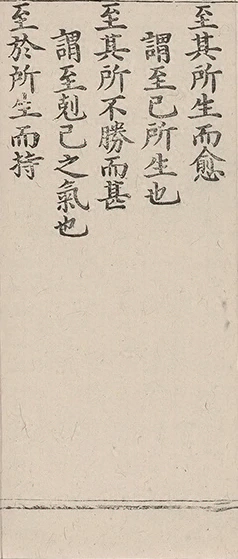 至其所生而愈
謂至已所生也
至其所不勝而甚
謂至剋己之氣也
至於所生而持